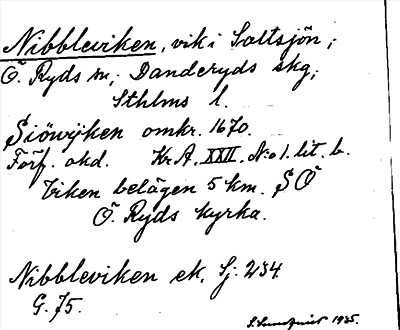 Nibbleviken, vik i Saltsjön;
Ö. Ryds sn; Danderyds skg;
Sthlms l.
Siöwijken omkr. 1670.
Förf. okd. Kr. A. XXII. N:o 1. lit. b.
Viken belägen 5 km. SÖ
Ö. Ryds kyrka.
Nibbleviken ek. Sj: 234
G. 75.
S. Lundquist 1935.